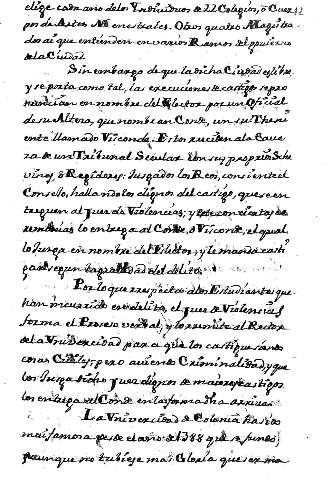 elige cada año de los Yndividuos de 22 Colegios, ò Cuer
pos de Artes Menestrales. Otros quatro Magistra
dos ai que entienden en varios Ramos del govierno
de la Ciudad.
Sin embargo de que la dicha Ciudad es libre,
y se porta como tal, las execuciones de castigo se pro
nuncian en nombre del Elector por un Oficial
de su Alteza, que nombran Conde, y un su Theni
ente llamado Visconde. Estos residen a la Cave
za de un Tribunal Secular con sus proprios Sche
vinos, ò Regidores: Juzgados los Reos, consiente el
Consello, hallandolos dignos del castigo, que se en
treguen al Juez de Violencias; y este con cartas de
remisorias lo entrega al Conde, ò Visconde, el qual
lo Juzga en nombre del Elector, y le manda casti
gar segun la gravedad del delito.
Por lo que respecta a los Estudiantes que
han incurrido en delito, el Juez de Violencias
forma el Proceso verbal, y lo remite al Rector
de la Vniversidad para que los castigue siendo
cosas Civiles; pero aviendo Criminalidad, y que
los Juzga dicho Juez dignos de maiores castigos
los entrega al Conde en la forma dha arriva.
La Vniversidad de Colonia ha sido
mui famosa desde el año de 1388 que se fundó;
y aunque no tubiese mas Gloria que ser ma